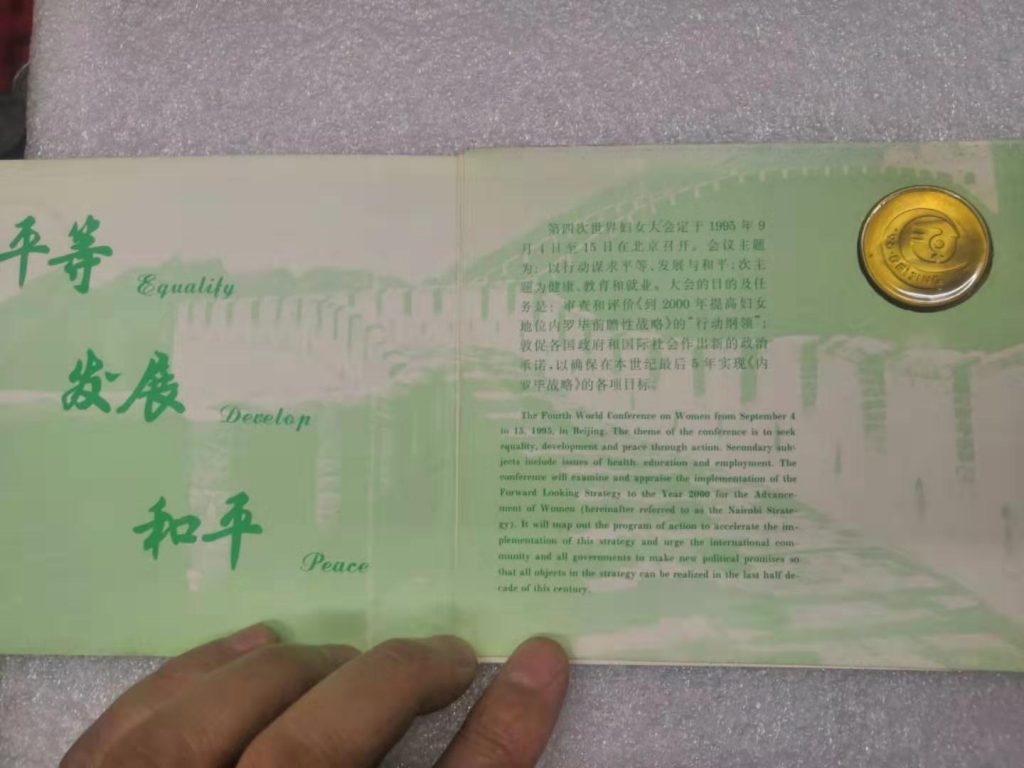 平等
Equalify
发展
Develop
和平
Peace
第四次世界妇女大会定于1995年9
月4日至15日在北京召开。会议主题
为：以行动谋求平等、发展与和平；次主
题为健康、教育和就业。大会的目的及任
务是：审查和评价《到2000年提高妇女
地位内罗毕前瞻性战略》的“行动纲领”；
敦促各国政府和国际社会作出新的政治
承诺，以确保在本世纪最后5年实现《内
罗毕战略》的各项目标。
The Fourth World Conference on Women from September 4
to 15, 1995, in Beijing. The theme of the conference is to seek
equality, development and peace through action. Secondary sub-
jects include issues of health, education and employment. The
conference will examine and appraise the implementation of the
Forward Looking Strategy to the Year 2000 for the Advance-
ment of Women (hereinafter referred to as the Nairobi Strate-
gy). It will map out the program of action to accelerate the im-
plementation of this strategy and urge the international com-
munity and all governments to make new political promises so
that all objects in the strategy can be realized in the last half de-
cade of this century.
BEIJING